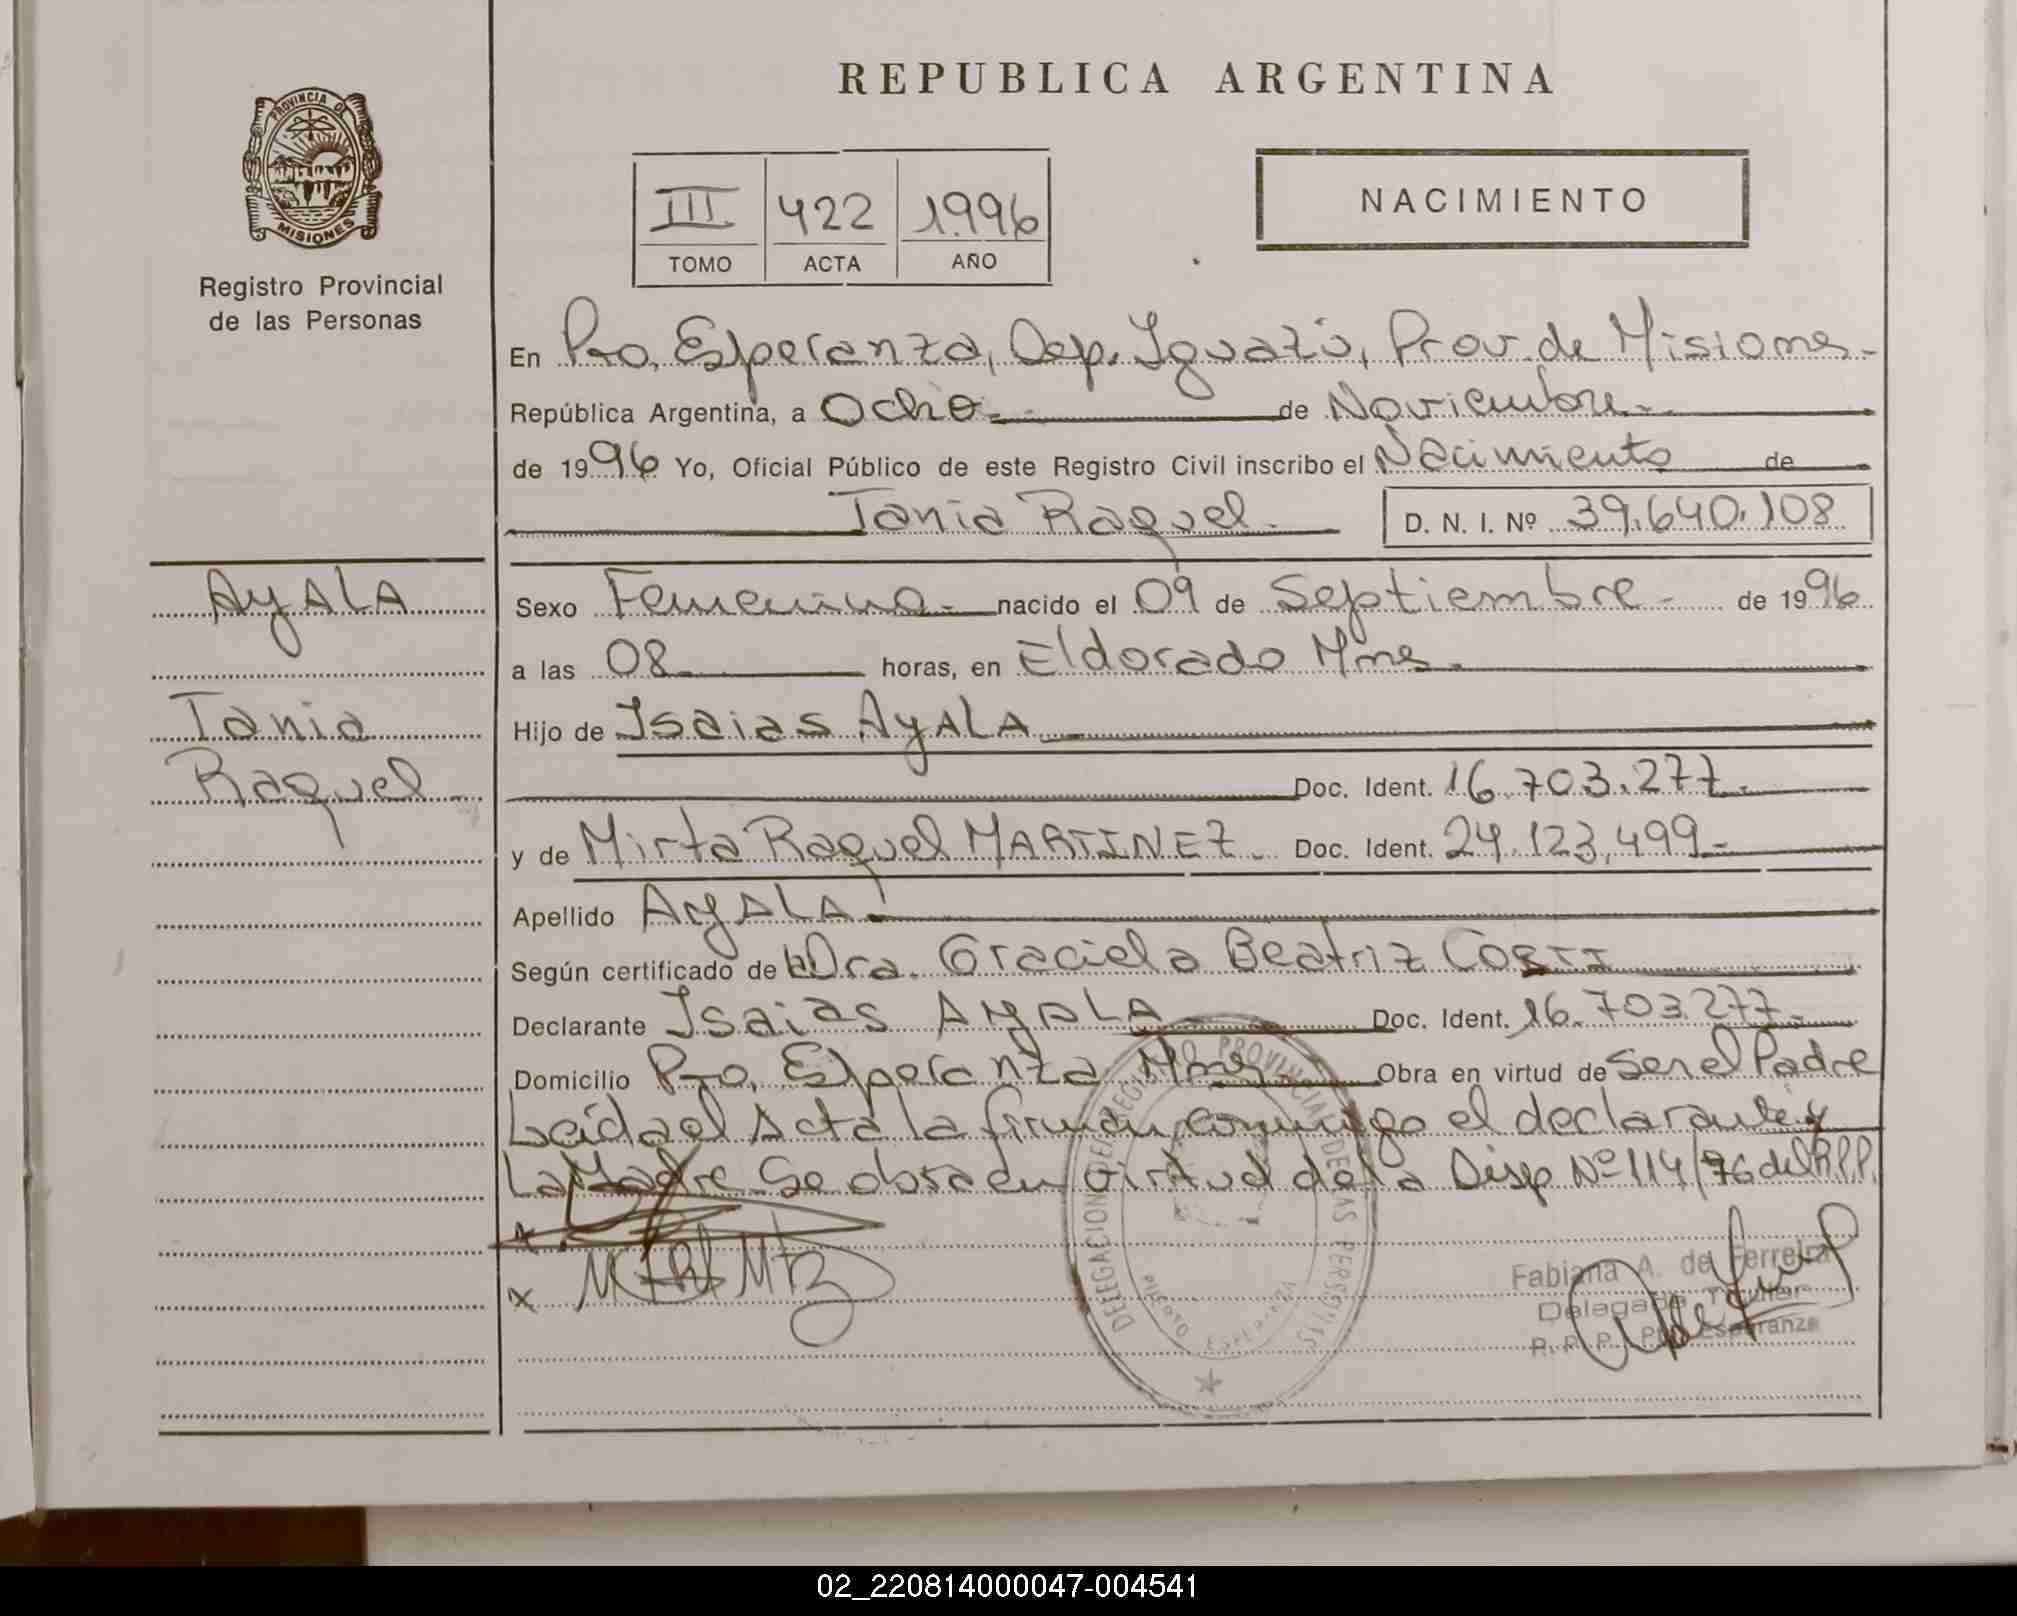 REPUBLICA ARGENTINA
PROVINCIA DE
MISIONES
Registro Provincial
de las Personas
III 422 1996
TOMO ACTA AÑO
NACIMIENTO
En Pto. Esperanza, Dep. Iguazú, Prov. de Misiones-
República Argentina, a Ocho- de Noviembre-
de 1996 Yo, Oficial Público de este Registro Civil inscribo el Nacimiento de
Tania Raquel- D. N. I. Nº 39.640.108
AyALA
Tania
Raquel
Sexo Femenino- nacido el 09 de Septiembre- de 1996
a las 08 horas, en Eldorado Mnes.
Hijo de Isaias AyALA
Doc. Ident. 16.703.277-
y de Mirta Raquel MARTINEZ. Doc. Ident. 24.123.499-
Apellido AyALA-
Según certificado de la Dra. Graciela Beatriz
Declarante Isaias AyALA Doc. Ident. 16.703.277-
Domicilio Pto. Esperanza Mnes Obra en virtud de Ser el Padre
Leída el Acta la firman conmigo el declarante y
La Madre Se obra en virtud de la Disp Nº 114/76 del R.P.P.
x
x
DELEGACION DEL REGISTRO PROVINCIAL DE LAS PERSONAS
PUERTO ESPERANZA
Fabiana A. de Ferreira
Delegada Titular
R. P. P. Pto. Esperanza
02_220814000047-004541